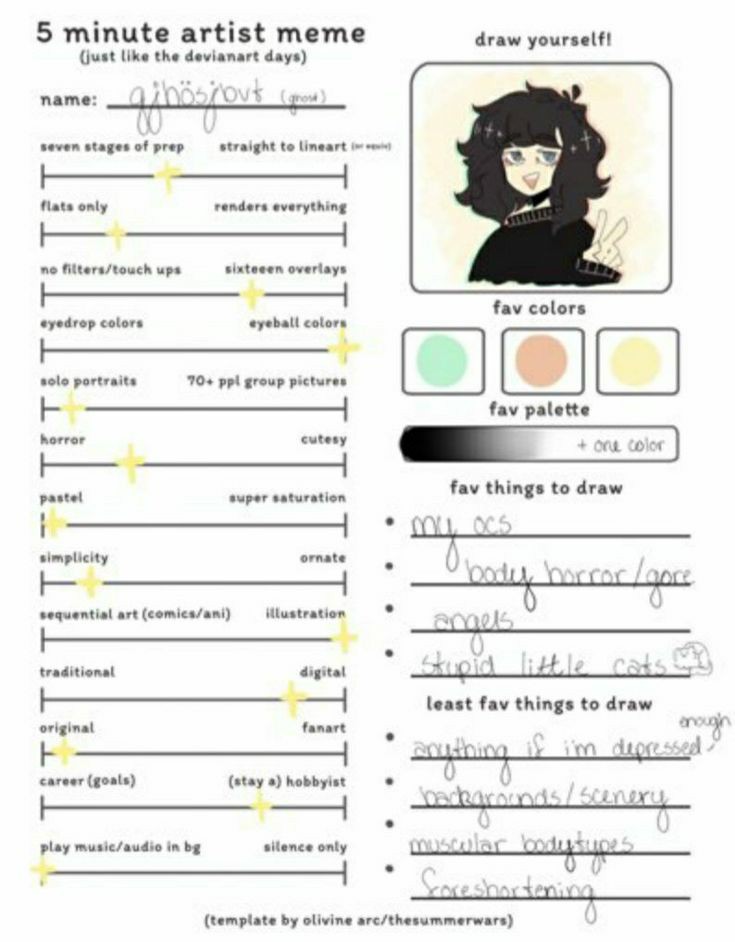 5 minute artist meme
(just like the devianart days)
name: gjhösjbvt (ghost)
seven stages of prep straight to lineart (or equiv)
flats only renders everything
no filters/touch ups sixteeen overlays
eyedrop colors eyeball colors
solo portraits 70+ ppl group pictures
horror cutesy
pastel super saturation
simplicity ornate
sequential art (comics/ani) illustration
traditional digital
original fanart
career (goals) (stay a) hobbyist
play music/audio in bg silence only
draw yourself!
fav colors
fav palette
+ one color
fav things to draw
my ocs
body horror/gore
angels
stupid little cats
least fav things to draw
anything if i'm depressed enough
backgrounds/scenery
muscular bodytypes
foreshortening
(template by olivine arc/thesummerwars)